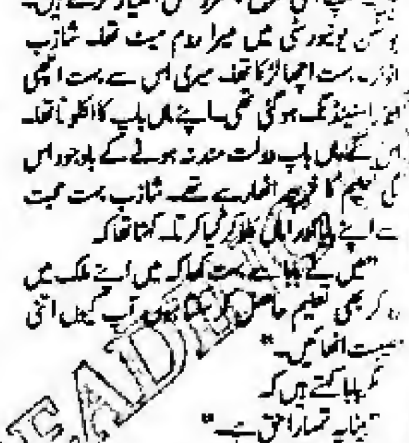 بوسٹن یونیورسٹی میں میرا روم میٹ تھا۔ شازب
بہت اچھا لڑکا تھا۔ میری اس سے بہت اچھی
انڈر اسٹینڈنگ ہوگئی تھی۔ اپنے ماں باپ کا اکلوتا تھا۔
اس کے ماں باپ دولت مند نہ ہونے کے باوجود اس
کی تعلیم کا خرچہ اٹھا رہے تھے۔ شازب بہت محبت
سے اپنے بابا اور اماں کا ذکر کیا کرتا۔ کہتا تھا کہ
"میں نے بابا سے بہت کہا کہ میں اپنے ملک میں
رہ کر بھی تعلیم حاصل کر سکتا ہوں۔ آپ کیوں اتنی
مصیبت اٹھائیں۔"
مگر بابا کہتے ہیں کہ
"بیٹا یہ تمہارا حق ہے۔"
READING